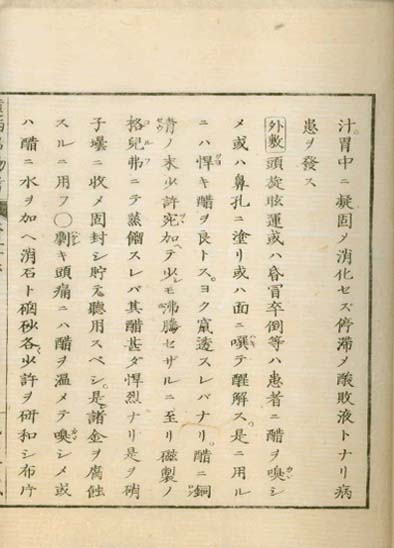 汁胃中ニ凝固メ消化セズ停滞メ酸敗液トナリ病
患ヲ發ス
外敷 頭旋眩運或ハ昏冒卒倒等ハ患者ニ醋ヲ嗅シ
メ或ハ鼻孔ニ塗リ或ハ面ニ噀テ醒解ス。是ニ用ル
ニハ悍キ醋ヲ良トス。ヨク竄透スレバナリ。醋ニ銅
青ノ末少許ヲ加ヘテ少モ沸騰セザルニ至リ磁製ノ
格兒弗ニテ蒸餾スレバ其醋甚ダ悍烈ナリ是ヲ硝
子壜ニ收メ固封シ貯テ聽用スベシ。是諸金ヲ腐蝕
スルニ用フ〇劇キ頭痛ニハ醋ヲ温メテ嗅シメ或
ハ醋ニ水ヲ加ヘ消石ト硇砂各少許ヲ研和シ布片